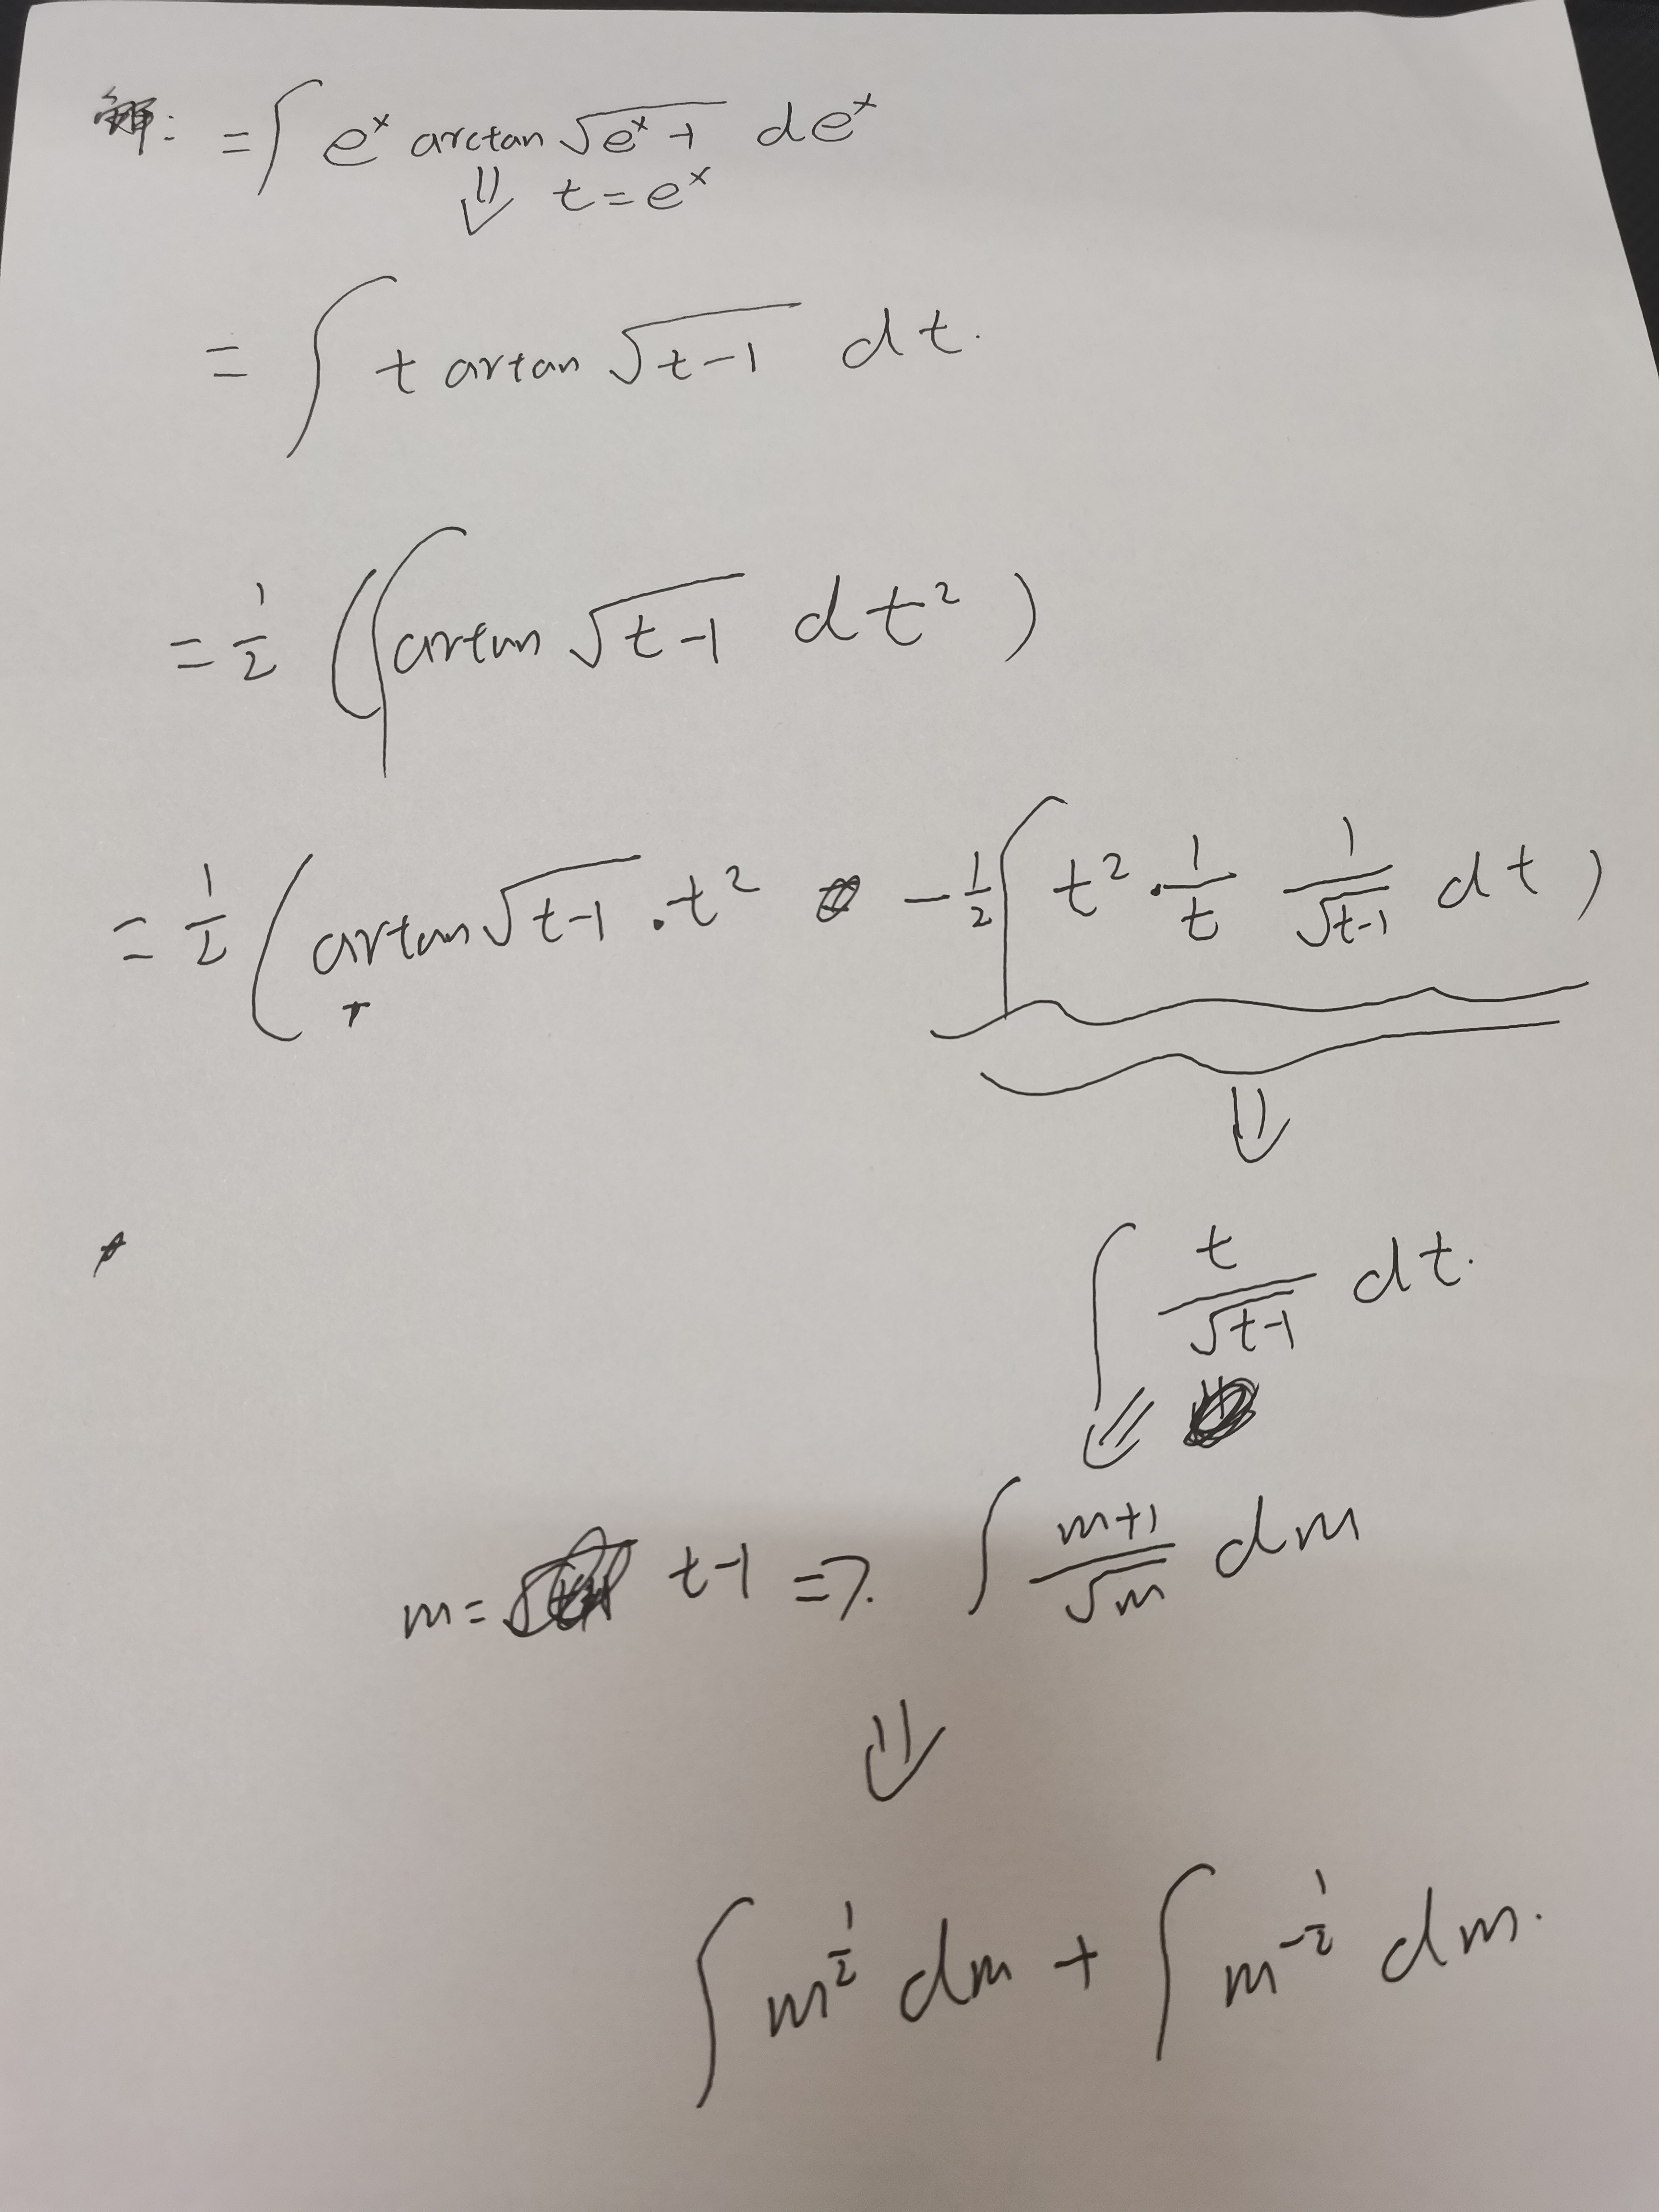 解: = ∫ e^x arctan √(e^x -1) de^x
⇓ t = e^x
= ∫ t artan √(t-1) dt.
= 1/2 ( ∫ artan √(t-1) dt² )
= 1/2 ( artan √(t-1) · t² - 1/2 ∫ t² · 1/t 1/√(t-1) dt )
⇓
∫ t/√(t-1) dt.
⇓
m = t-1 => ∫ (m+1)/√m dm
⇓
∫ m^(1/2) dm + ∫ m^(-1/2) dm.